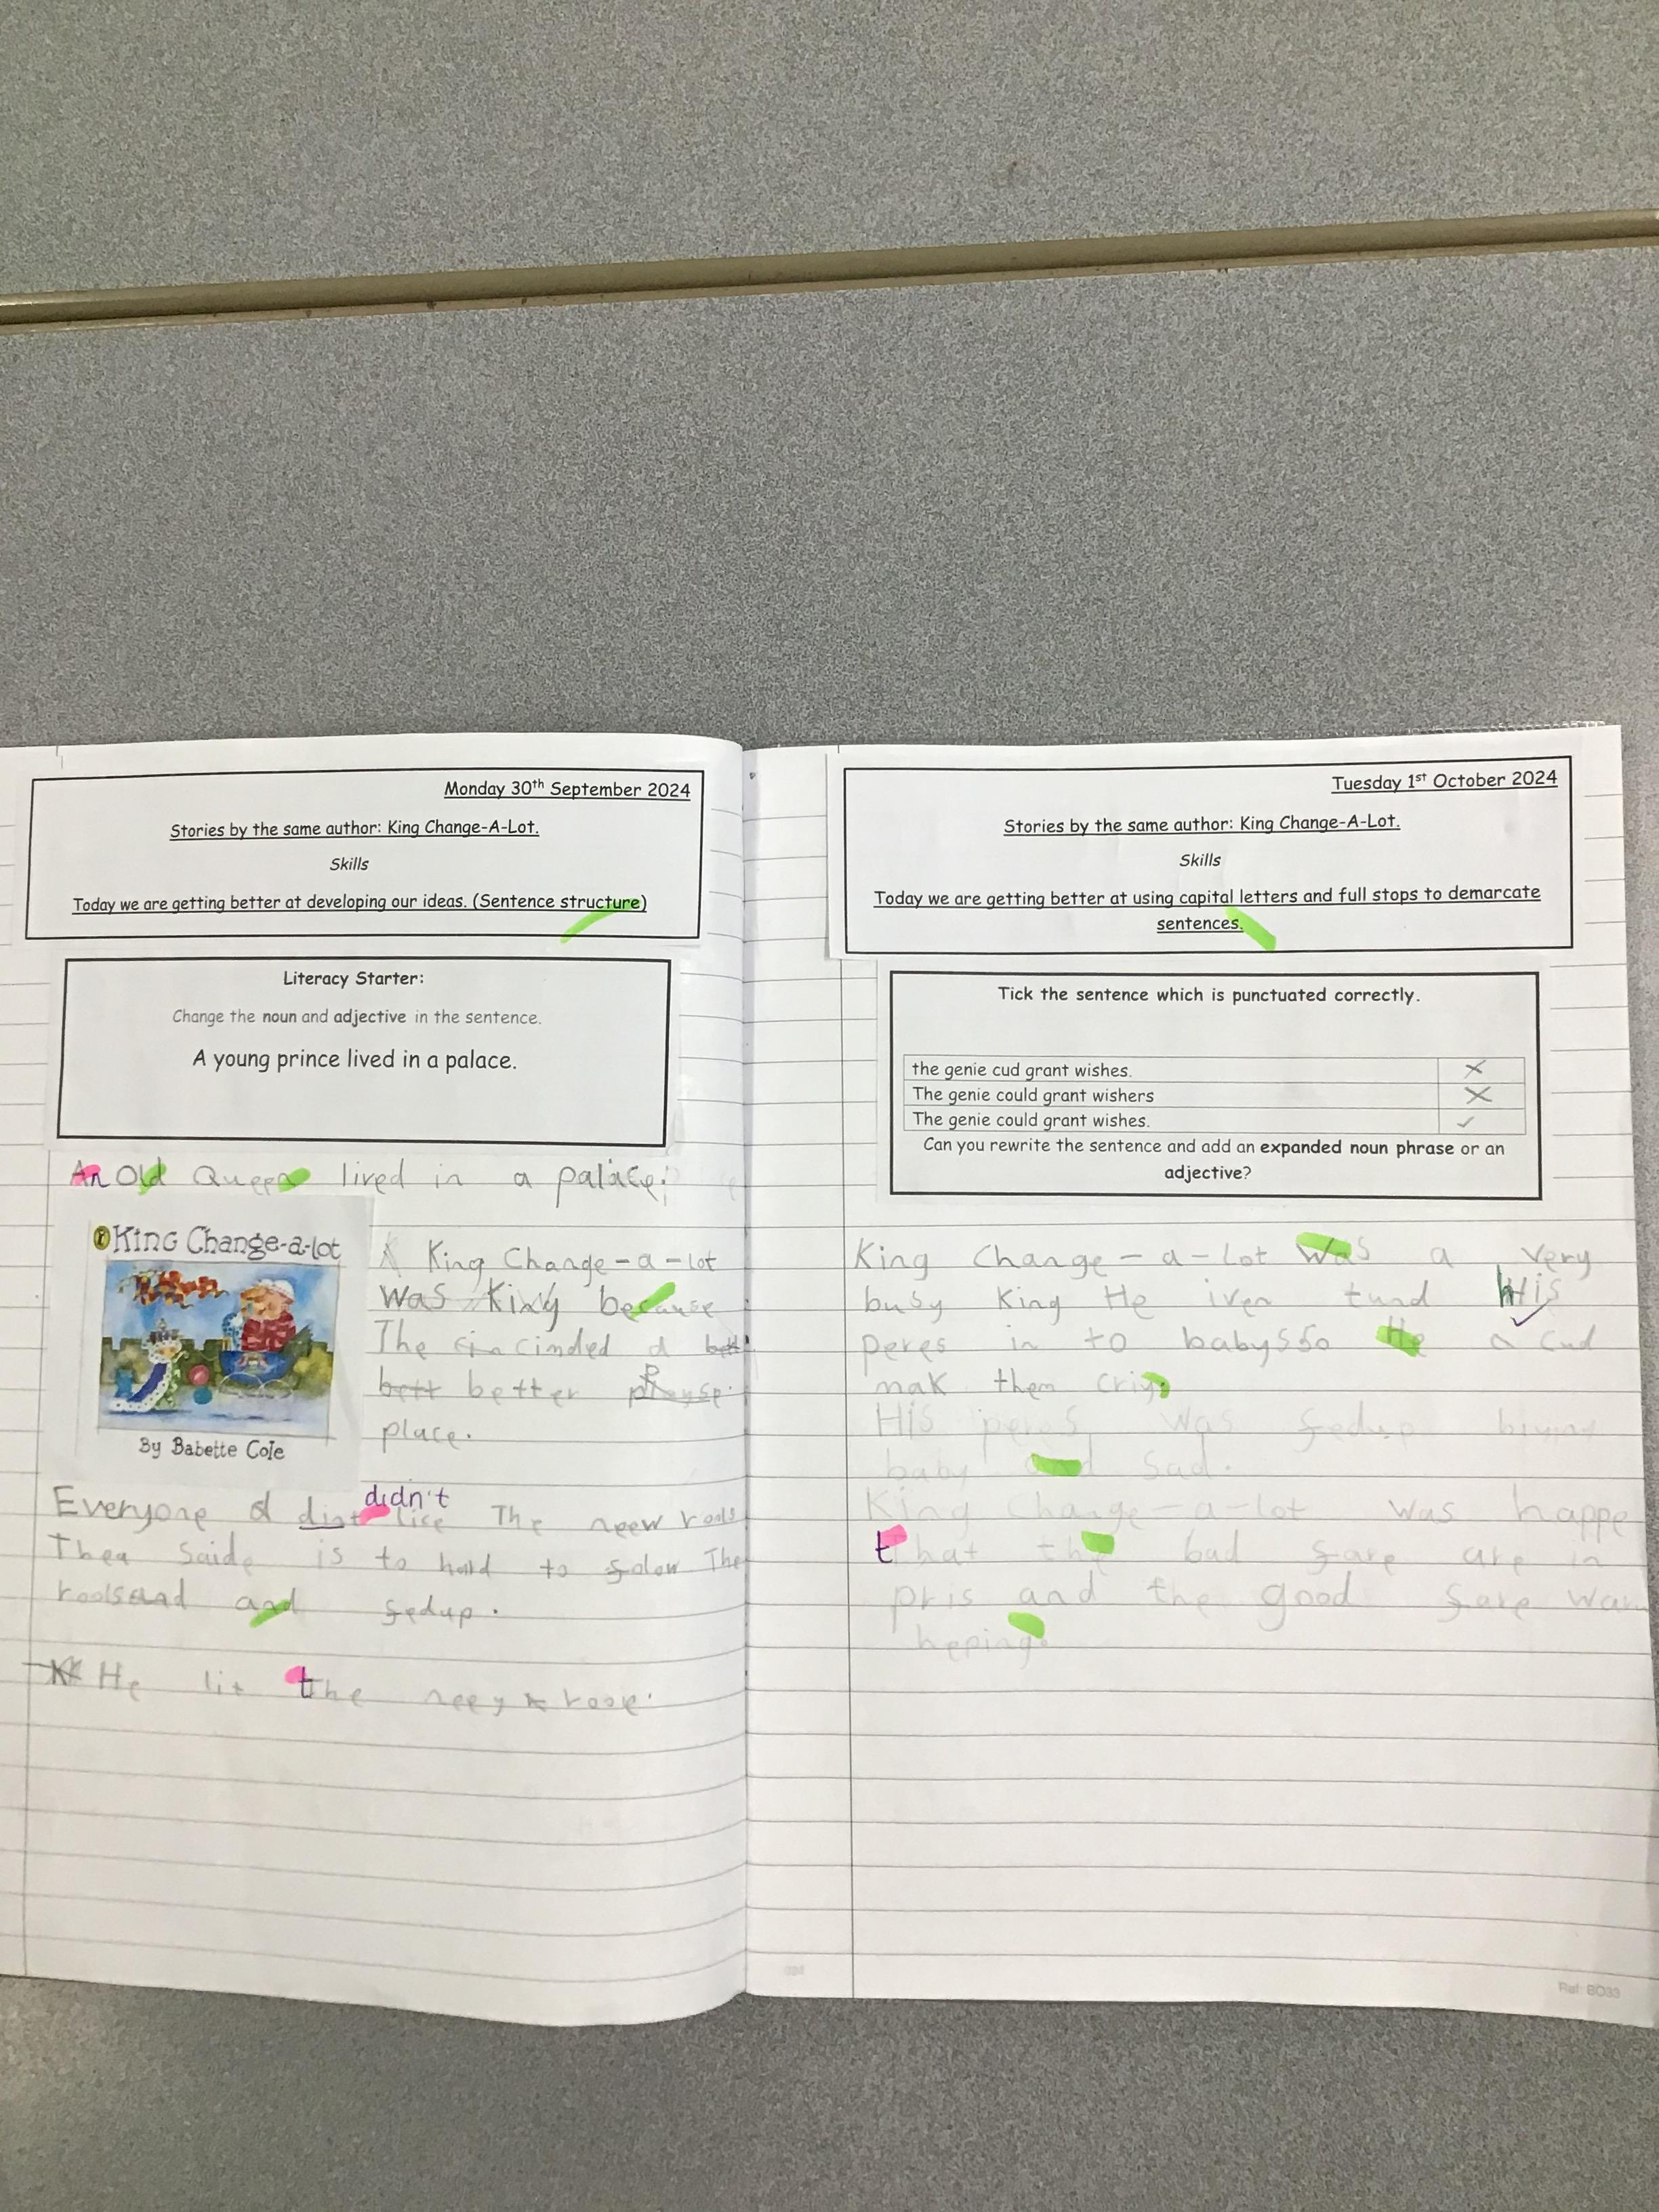 Monday 30th September 2024
Stories by the same author: King Change-A-Lot.
Skills
Today we are getting better at developing our ideas. (Sentence structure)
Literacy Starter:
Change the noun and adjective in the sentence.
A young prince lived in a palace.
An Old Queen lived in a palace.
King Change-a-lot
By Babette Cole
King Change-a-lot
was King because
The cinded a
better
place.
didn't
Everyone dint lice The neew rools
Thea Saide is to hard to folow The
roolsand and fedup.
He lit the
Tuesday 1st October 2024
Stories by the same author: King Change-A-Lot.
Skills
Today we are getting better at using capital letters and full stops to demarcate
sentences.
Tick the sentence which is punctuated correctly.
the genie cud grant wishes.
The genie could grant wishers
The genie could grant wishes.
Can you rewrite the sentence and add an expanded noun phrase or an
adjective?
King Change-a-lot was a very
busy King He iven tund His
peres in to babysso He a cud
mak them criy.
His peres was fedup
baby and sad.
King Change-a-lot was happe
that the bad fare are in
pris and the good fare
heping.
Ref: BD33